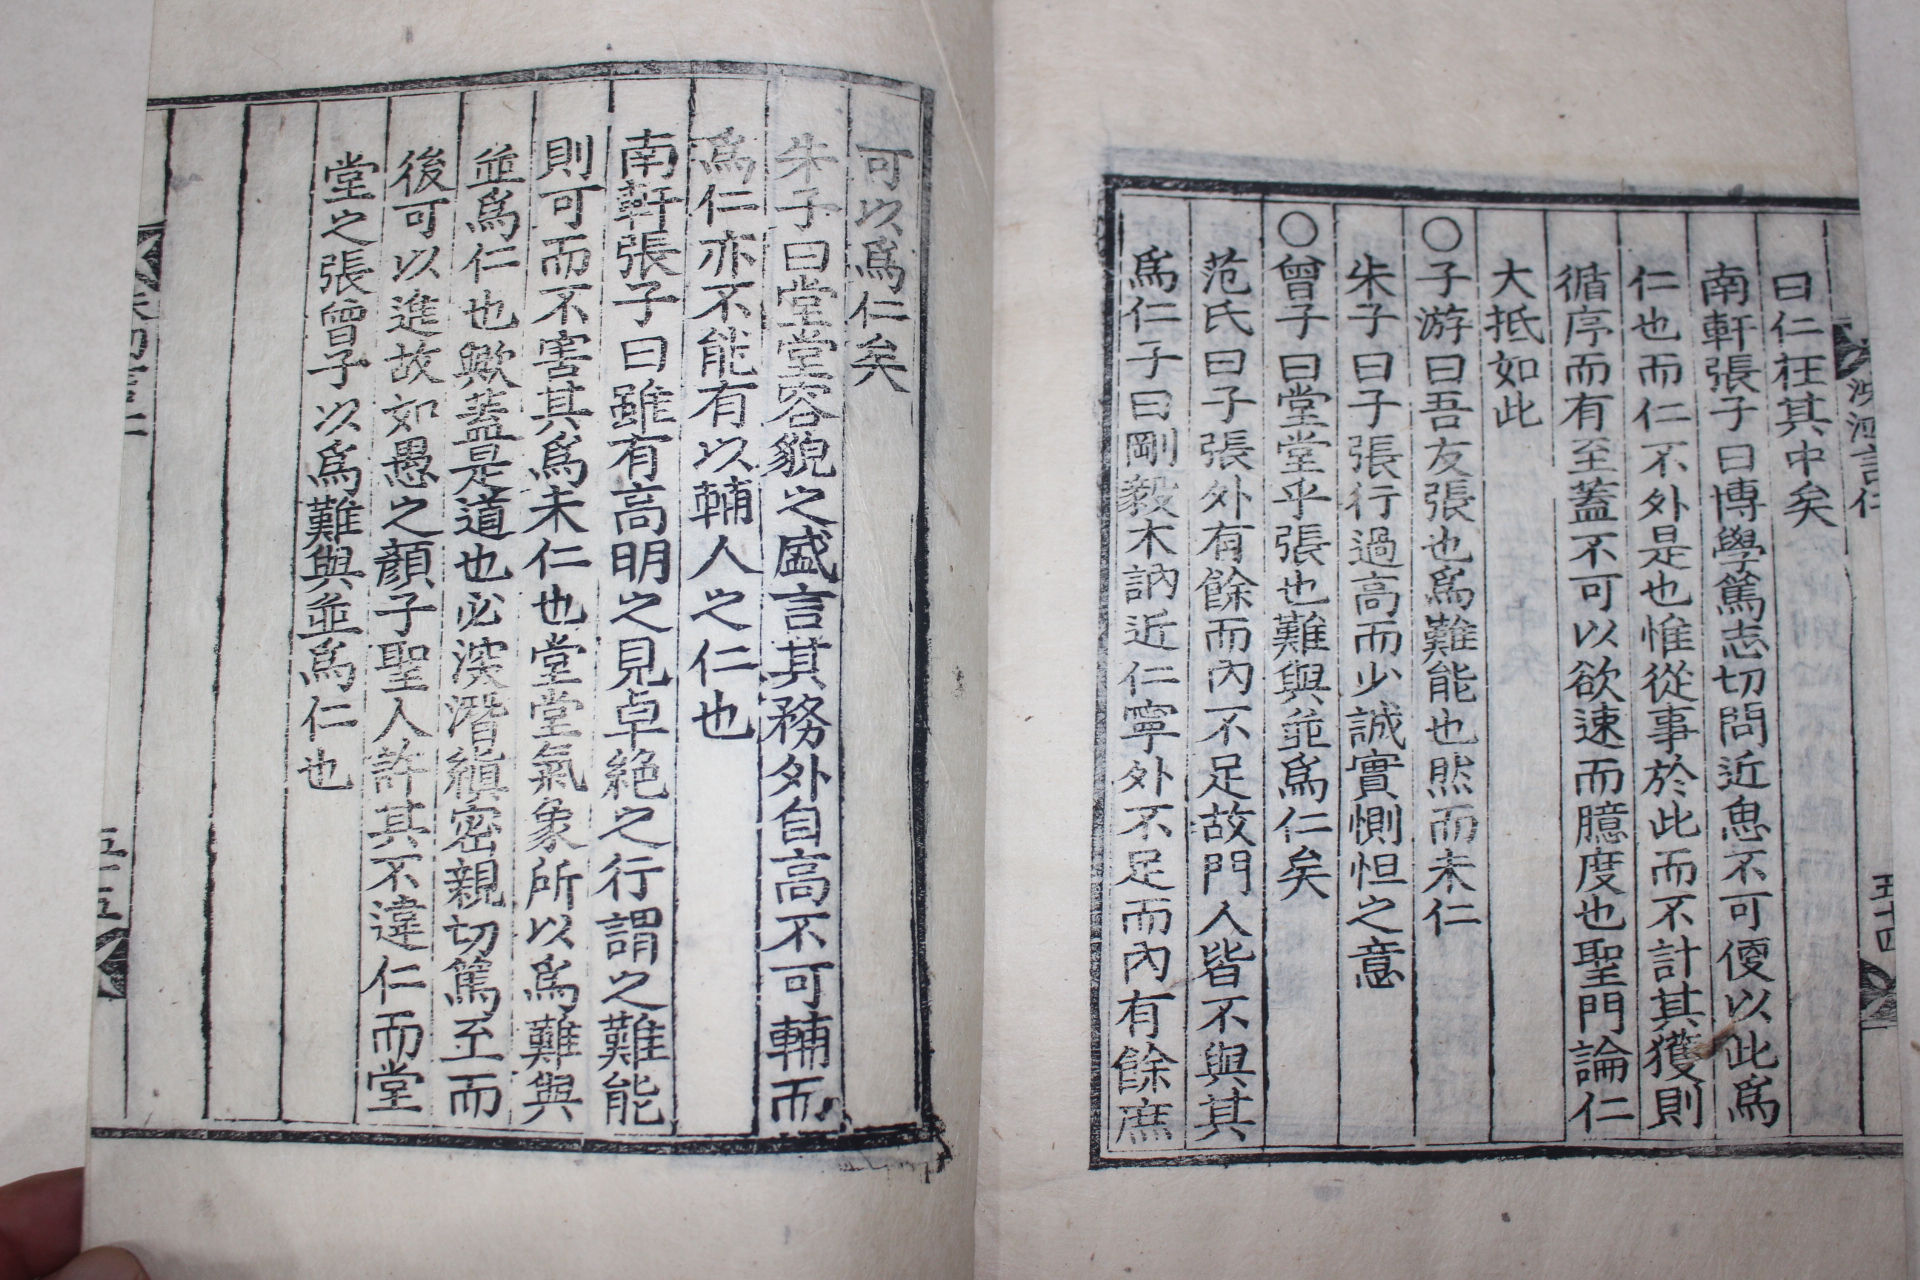 洙泗言仁
五十四
曰仁在其中矣
南軒張子曰博學篤志切問近思不可便以此爲
仁也而仁不外是也惟從事於此而不計其獲則
循序而有至蓋不可以欲速而臆度也聖門論仁
大抵如此
○子游曰吾友張也爲難能也然而未仁
朱子曰子張行過高而少誠實惻怛之意
○曾子曰堂堂乎張也難與並爲仁矣
范氏曰子張外有餘而內不足故門人皆不與其
爲仁子曰剛毅木訥近仁寧外不足而內有餘庶
可以爲仁矣
朱子曰堂堂容貌之盛言其務外自高不可輔而
爲仁亦不能有以輔人之仁也
南軒張子曰雖有高明之見卓絶之行謂之難能
則可而不害其爲未仁也堂堂氣象所以爲難與
並爲仁也歟蓋是道也必深潛縝密親切篤至而
後可以進故如愚之顔子聖人許其不違仁而堂
堂之張曾子以爲難與並爲仁也
五十五